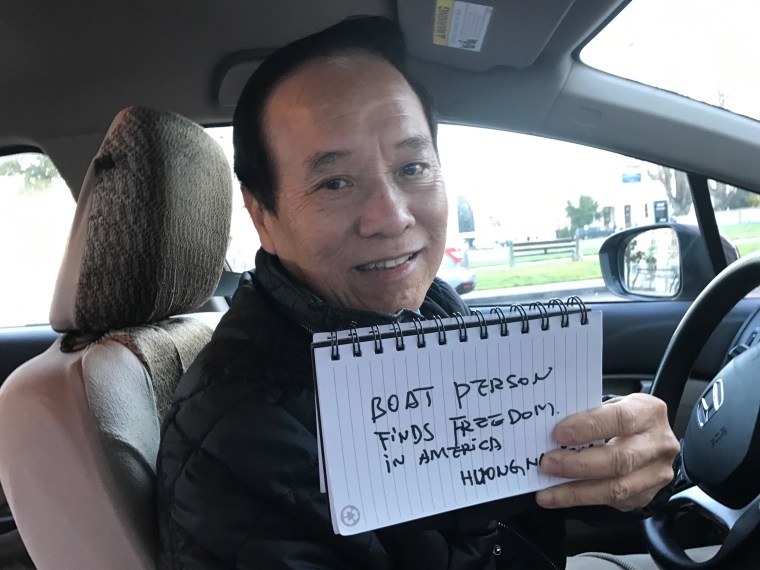 BOAT PERSON
FINDS FREEDOM.
IN AMERICA